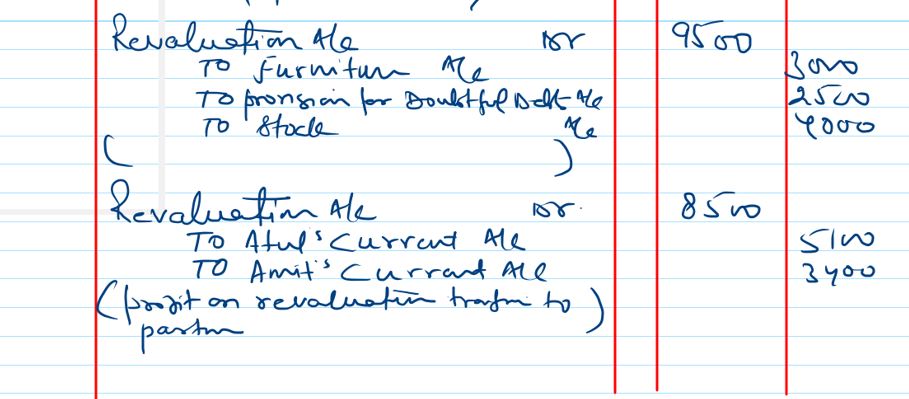 Revaluation A/c Dr 9500
To Furniture A/c 3000
To provision for Doubtful Debt A/c 2500
To Stock A/c 4000
( )
Revaluation A/c Dr. 8500
To Atul's Current A/c 5100
To Amit's Current A/c 3400
(profit on revaluation transfer to )
partner